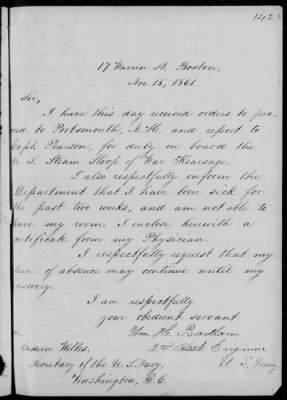 142
17 Warren St. Boston,
Nov. 15, 1861.
Sir,
I have this day recieved orders to pro-
ceed to Portsmouth, N. H. and report to
Capt. Pearson, for duty on board the
U. S. Steam Sloop of War Kearsage.
I also respectfully inform the
Department that I have been sick for
the past two weeks, and am not able to
leave my room. I enclose herewith a
certificate from my Physician.
I respectfully request that my
leave of absence may continue until my
recovery.
I am respectfully
your obedient servant
Wm H. Badlam
2nd Asst. Engineer
U. S. Navy
Gideon Welles,
Secretary of the U. S. Navy,
Washington, D. C.